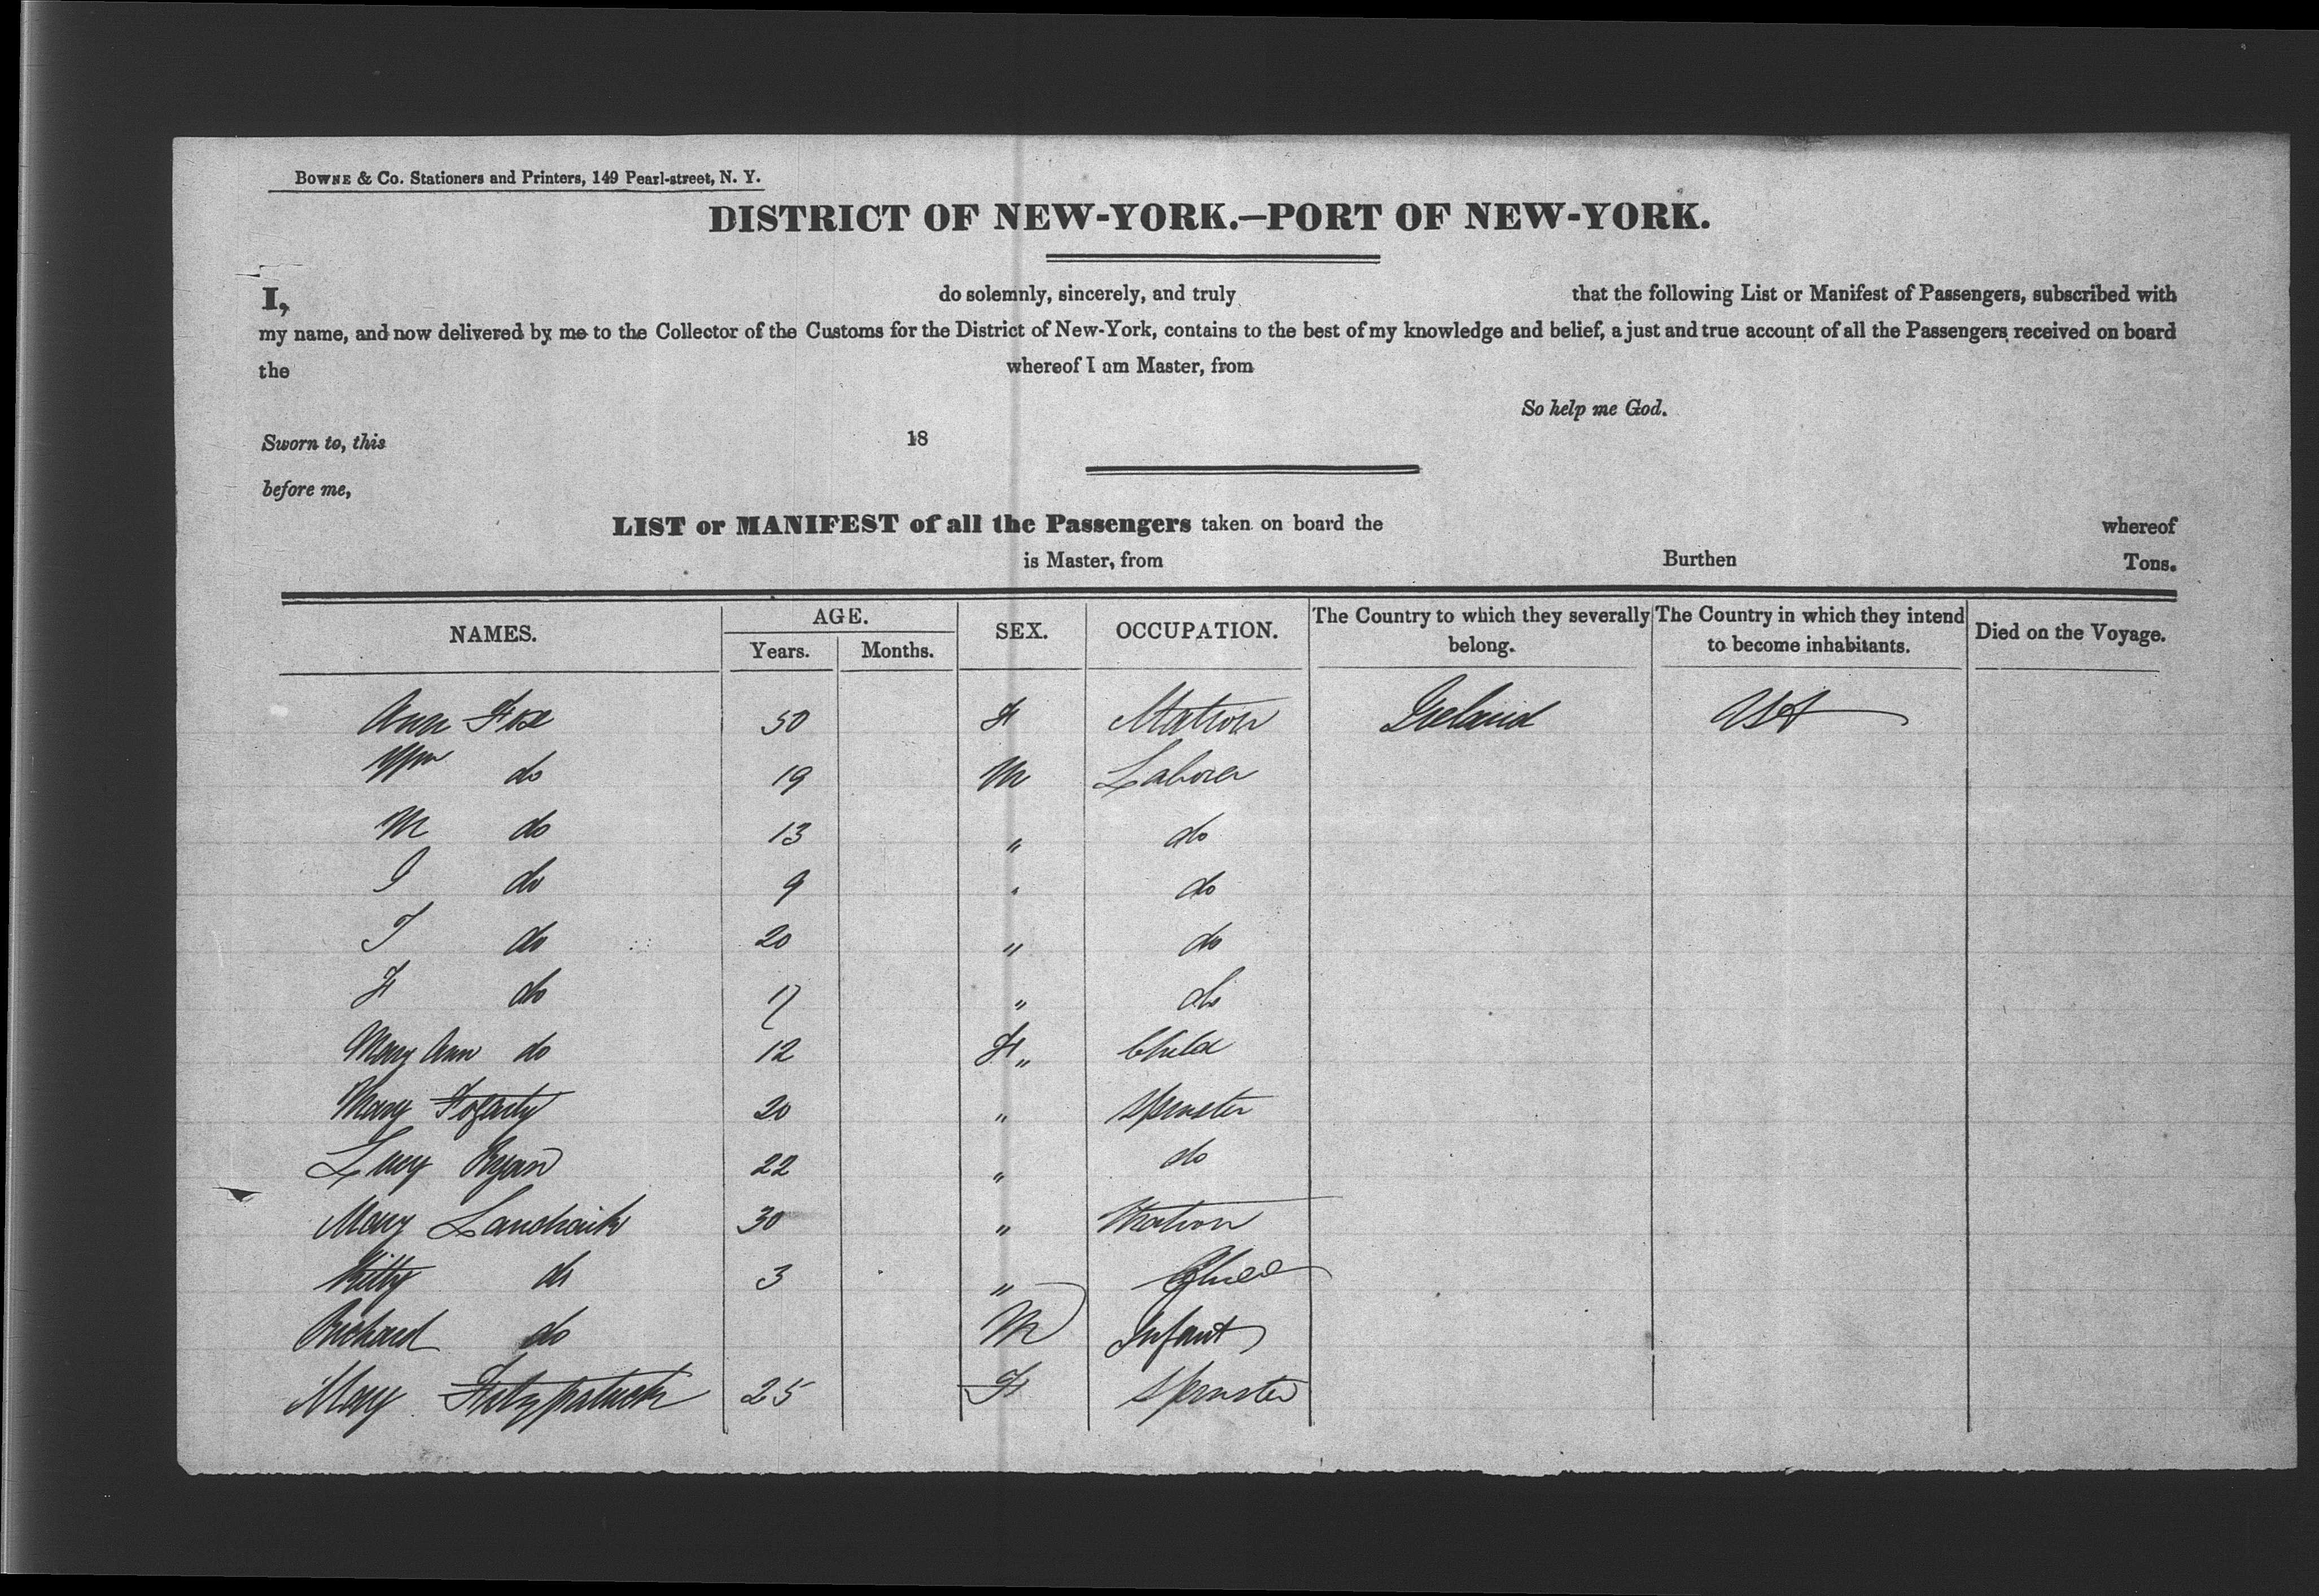 BOWNE & CO. Stationers and Printers, 149 Pearl-street, N. Y.
DISTRICT OF NEW-YORK.—PORT OF NEW-YORK.
I, do solemnly, sincerely, and truly that the following List or Manifest of Passengers, subscribed with
my name, and now delivered by me to the Collector of the Customs for the District of New-York, contains to the best of my knowledge and belief, a just and true account of all the Passengers received on board
the whereof I am Master, from
So help me God.
Sworn to, this 18
before me,
LIST or MANIFEST of all the Passengers taken on board the whereof
is Master, from Burthen Tons.
NAMES. AGE. Years. Months. SEX. OCCUPATION. The Country to which they severally belong. The Country in which they intend to become inhabitants. Died on the Voyage.
Ann Fox 50 F Matron Ireland USA
Wm do 19 M Laborer
M do 13 " do
do 9 do
do 20 " do
F do 17 " do
Mary Ann do 12 F " Child
Mary Fogarty 20 " Spinster
Lucy Ryan 22 " do
Mary 30 " Matron
Kitty do 3 " Child
Richard do M Infant
Mary Fitzpatrick 25 F Spinster